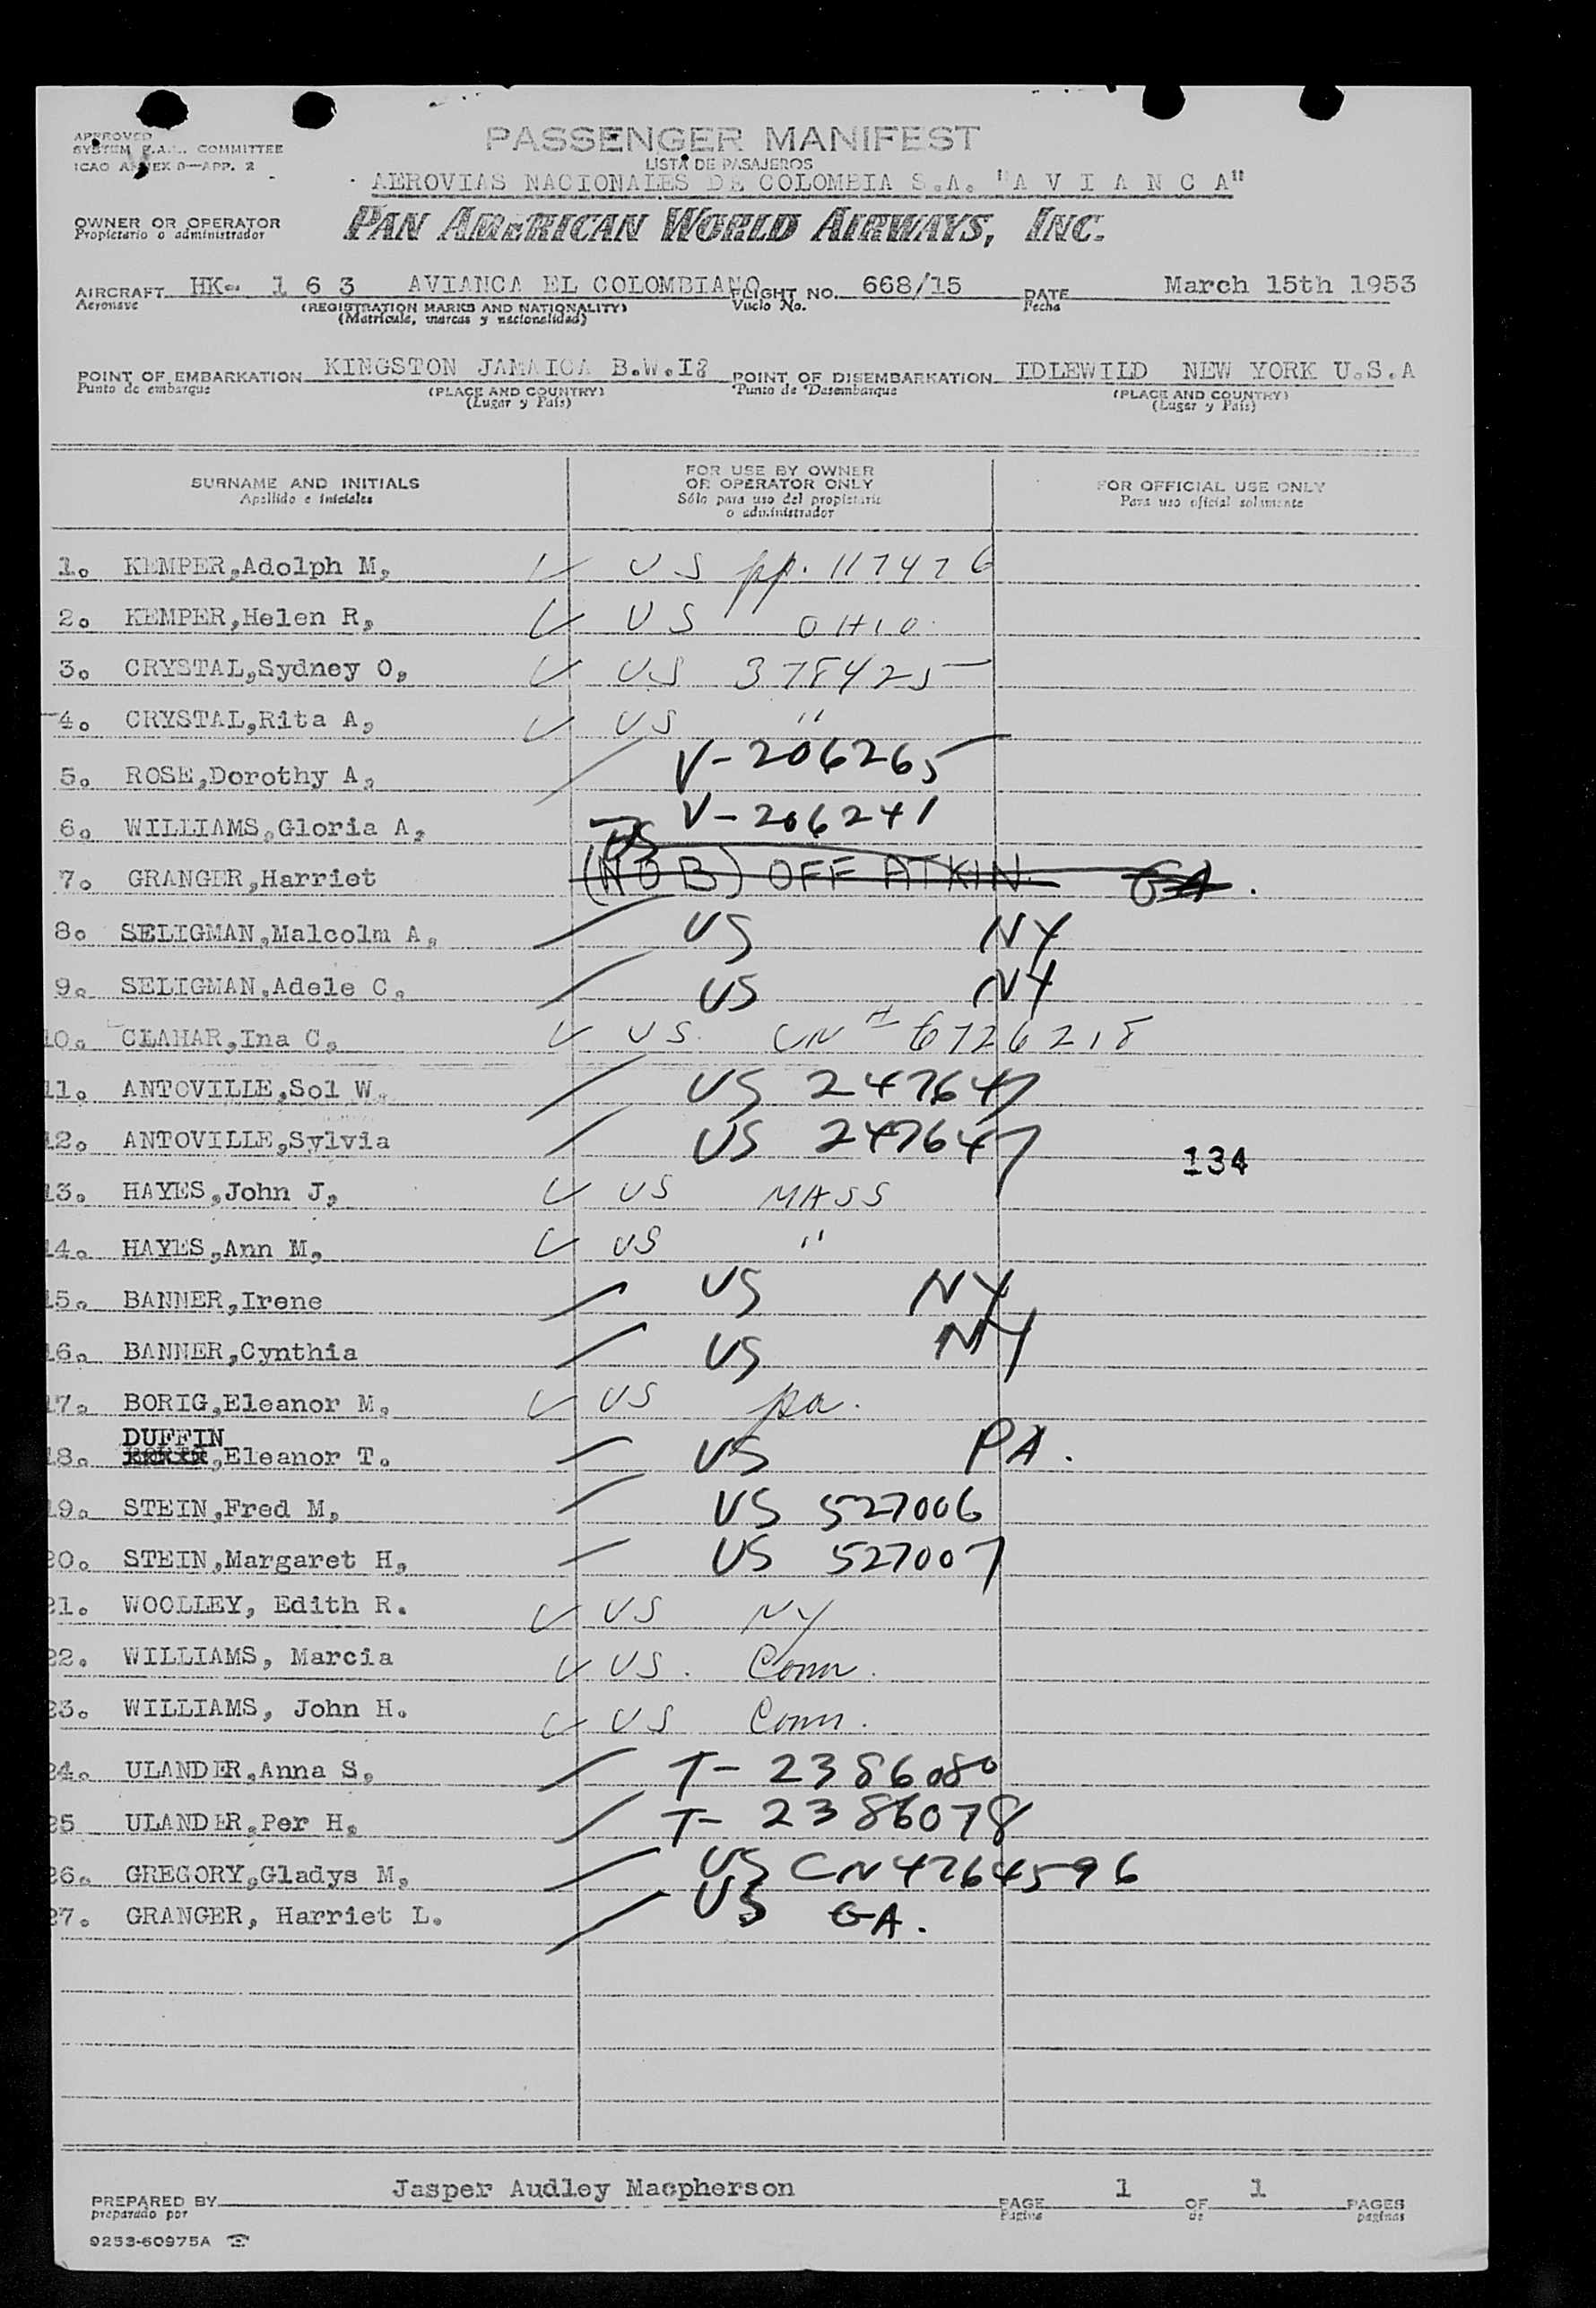 APPROVED
SYSTEM F.A.L. COMMITTEE
ICAO ANNEX 9—APP. 2
PASSENGER MANIFEST
LISTA DE PASAJEROS
AEROVIAS NACIONALES DE COLOMBIA S.A. "A V I A N C A"
OWNER OR OPERATOR
Propietario o administrador
PAN AMERICAN WORLD AIRWAYS, INC.
AIRCRAFT HK- 1 6 3 AVIANCA EL COLOMBIANO FLIGHT NO. 668/15 DATE March 15th 1953
Aeronave (REGISTRATION MARKS AND NATIONALITY) Vuelo No. Fecha
(Matricula, marcas y nacionalidad)
POINT OF EMBARKATION KINGSTON JAMAICA B.W.I? POINT OF DISEMBARKATION IDLEWILD NEW YORK U.S.A
Punto de embarque (PLACE AND COUNTRY) Punto de Desembarque (PLACE AND COUNTRY)
(Lugar y País) (Lugar y País)
SURNAME AND INITIALS FOR USE BY OWNER OR OPERATOR ONLY FOR OFFICIAL USE ONLY
Apellido e iniciales Sólo para uso del propietario o administrador Para uso oficial solamente
1. KEMPER,Adolph M, US pp. 117476
2. KEMPER,Helen R, US OHIO.
3. CRYSTAL,Sydney O, US 378425
4. CRYSTAL,Rita A, US "
5. ROSE,Dorothy A, V-206265
6. WILLIAMS,Gloria A, V-206241
7. GRANGER,Harriet US (NOB) OFF ATKIN GA.
8. SELIGMAN,Malcolm A, US NY
9. SELIGMAN,Adele C, US NY
10. CLAHAR,Ina C, US. CN # 6726218
11. ANTOVILLE,Sol W. US 247647
12. ANTOVILLE,Sylvia US 247647
134
13. HAYES,John J, US MASS
14. HAYES,Ann M, US "
15. BANNER,Irene US NY
16. BANNER,Cynthia US NY
17. BORIG,Eleanor M, US pa.
DUFFIN
18. ,Eleanor T. US PA.
19. STEIN,Fred M, US 527006
20. STEIN,Margaret H, US 527007
21. WOOLLEY, Edith R. US NY
22. WILLIAMS, Marcia US. Conn.
23. WILLIAMS, John H. US Conn.
24. ULANDER,Anna S, T- 2386080
25 ULANDER,Per H, T- 2386078
26. GREGORY,Gladys M, US CN4764596
27. GRANGER, Harriet L. US GA.
PREPARED BY Jasper Audley Macpherson PAGE 1 OF 1 PAGES
preparado por Página de páginas
9253-60975A